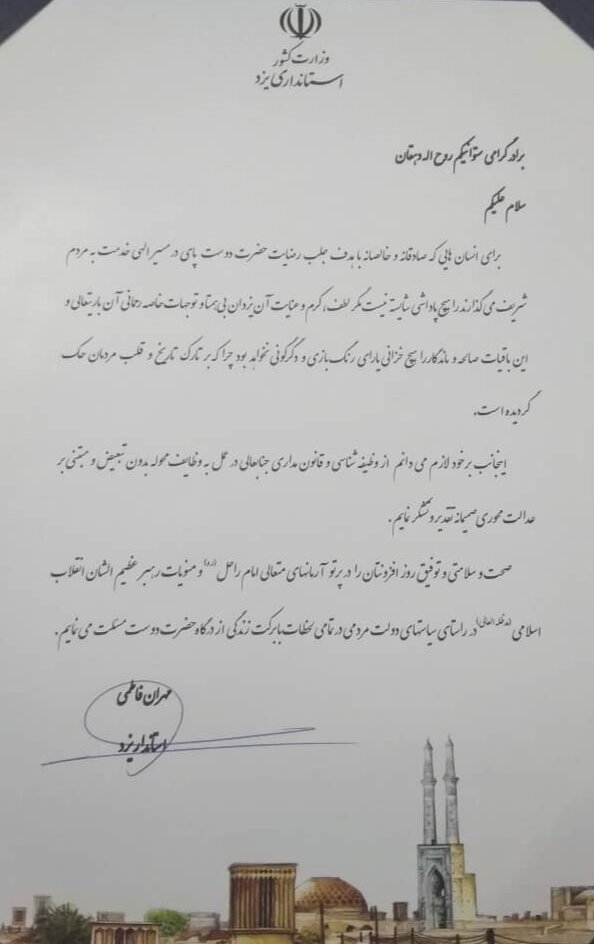 وزارت کشور
استانداری یزد
برادر گرامی ستوانیکم روح اله دهقان
سلام علیکم
برای انسان هایی که صادقانه و خالصانه با هدف جلب رضایت حضرت دوست پای در مسیر الهی خدمت به مردم
شریف می گذارند را هیچ پاداشی شایسته نیست مگر لطف، کرم و عنایت آن یزدان بی همتا و توجهات خاصه رحمانی آن باریتعالی و
این باقیات صالحه و ماندگار را هیچ خزانی یارای رنگ بازی و دگرگونی نخواهد بود چرا که بر تارک تاریخ و قلب مردمان حک
گردیده است.
اینجانب بر خود لازم می دانم از وظیفه شناسی و قانون مداری جنابعالی در عمل به وظایف محوله بدون تبعیض و مبتنی بر
عدالت محوری صمیمانه تقدیر و تشکر نمایم.
صحت و سلامتی و توفیق روز افزونتان را در پرتو آرمانهای متعالی امام راحل (ره) و منویات رهبر عظیم الشان انقلاب
اسلامی (مدظله العالی) در راستای سیاستهای دولت مردمی در تمامی لحظات با برکت زندگی از درگاه حضرت دوست مسئلت می نمایم.
مهران فاطمی
استاندار یزد